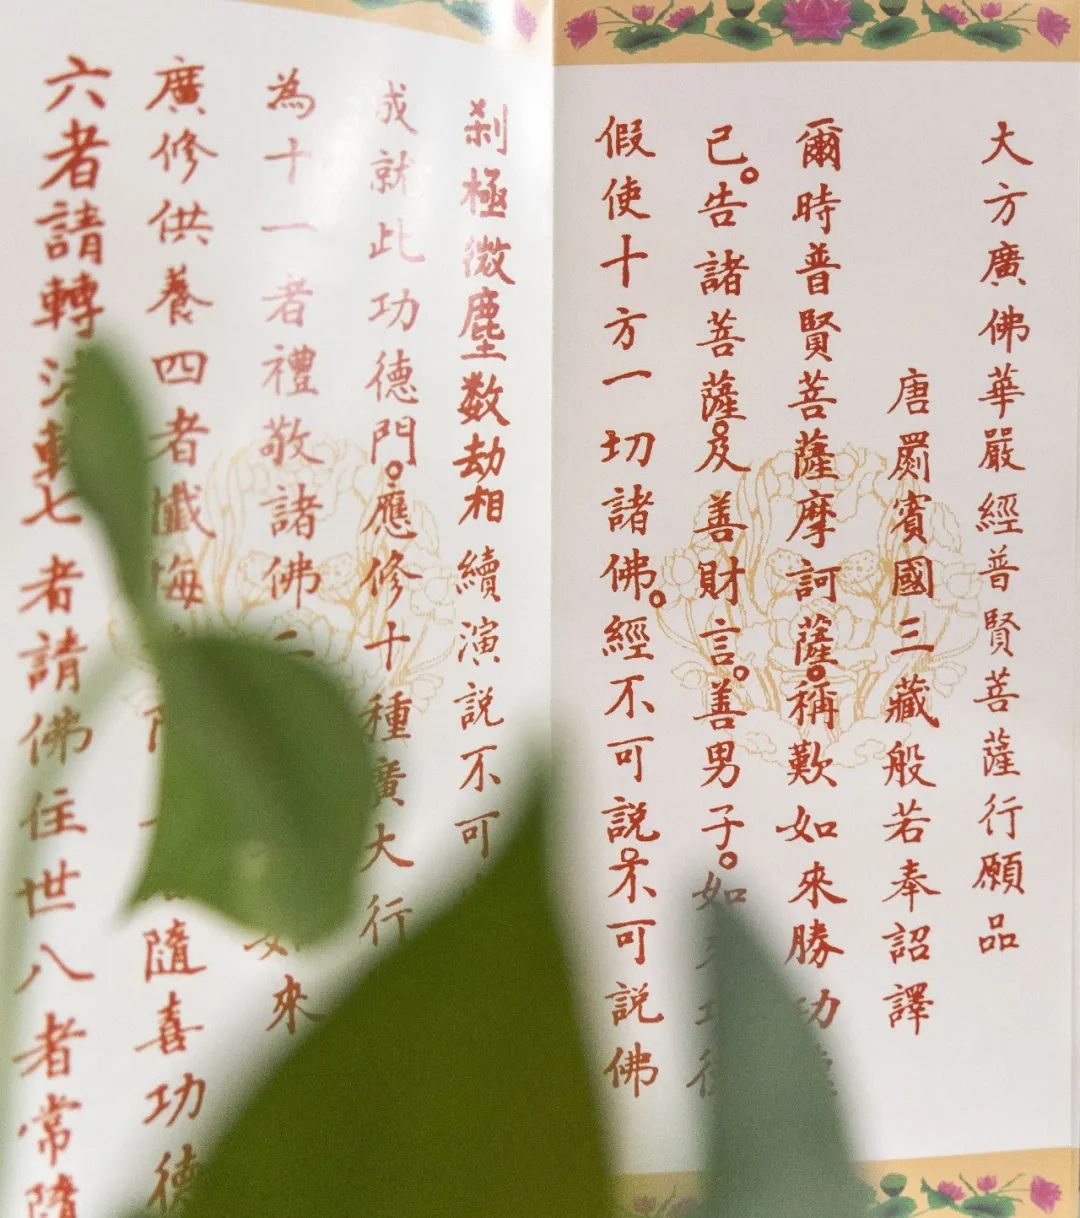 大方廣佛華嚴經普賢菩薩行願品
唐罽賓國三藏般若奉詔譯
爾時普賢菩薩摩訶薩。稱歎如來勝功
已。告諸菩薩。及善財言。善男子。如
假使十方一切諸佛。經不可説。不可説佛
刹極微塵数劫相續演説不可
成就此功德門。應修十種廣大行
為十一者禮敬諸佛二如來
廣修供養四者懺悔隨喜功德
六者請轉法輪七者請佛住世八者常隨